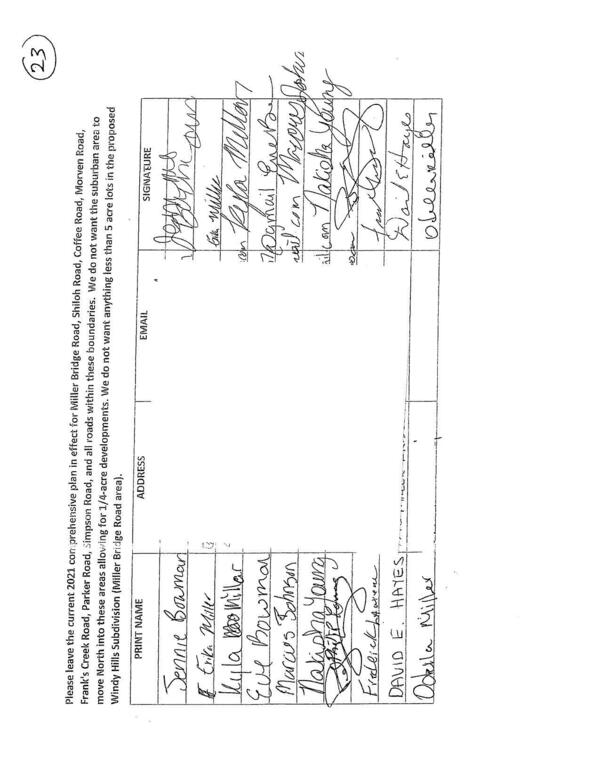 23
Please leave the current 2021 comprehensive plan in effect for Miller Bridge Road, Shiloh Road, Coffee Road, Morven Road,
Frank's Creek Road, Parker Road, Simpson Road, and all roads within these boundaries. We do not want the suburban area to
move North into these areas allowing for 1/4-acre developments. We do not want anything less than 5 acre lots in the proposed
Windy Hills Subdivision (Miller Bridge Road area).
PRINT NAME ADDRESS EMAIL SIGNATURE
Jennie Bowman
Erika Miller Erika Miller
Kyla Miller Kyla Miller
Eve Bowman gmail Eve
Marcus Johnson com Marcus
Nakisha Young com Nakisha Young
Fredrick
DAVID E. HAYES David E Hayes
Odella Miller Odella Miller